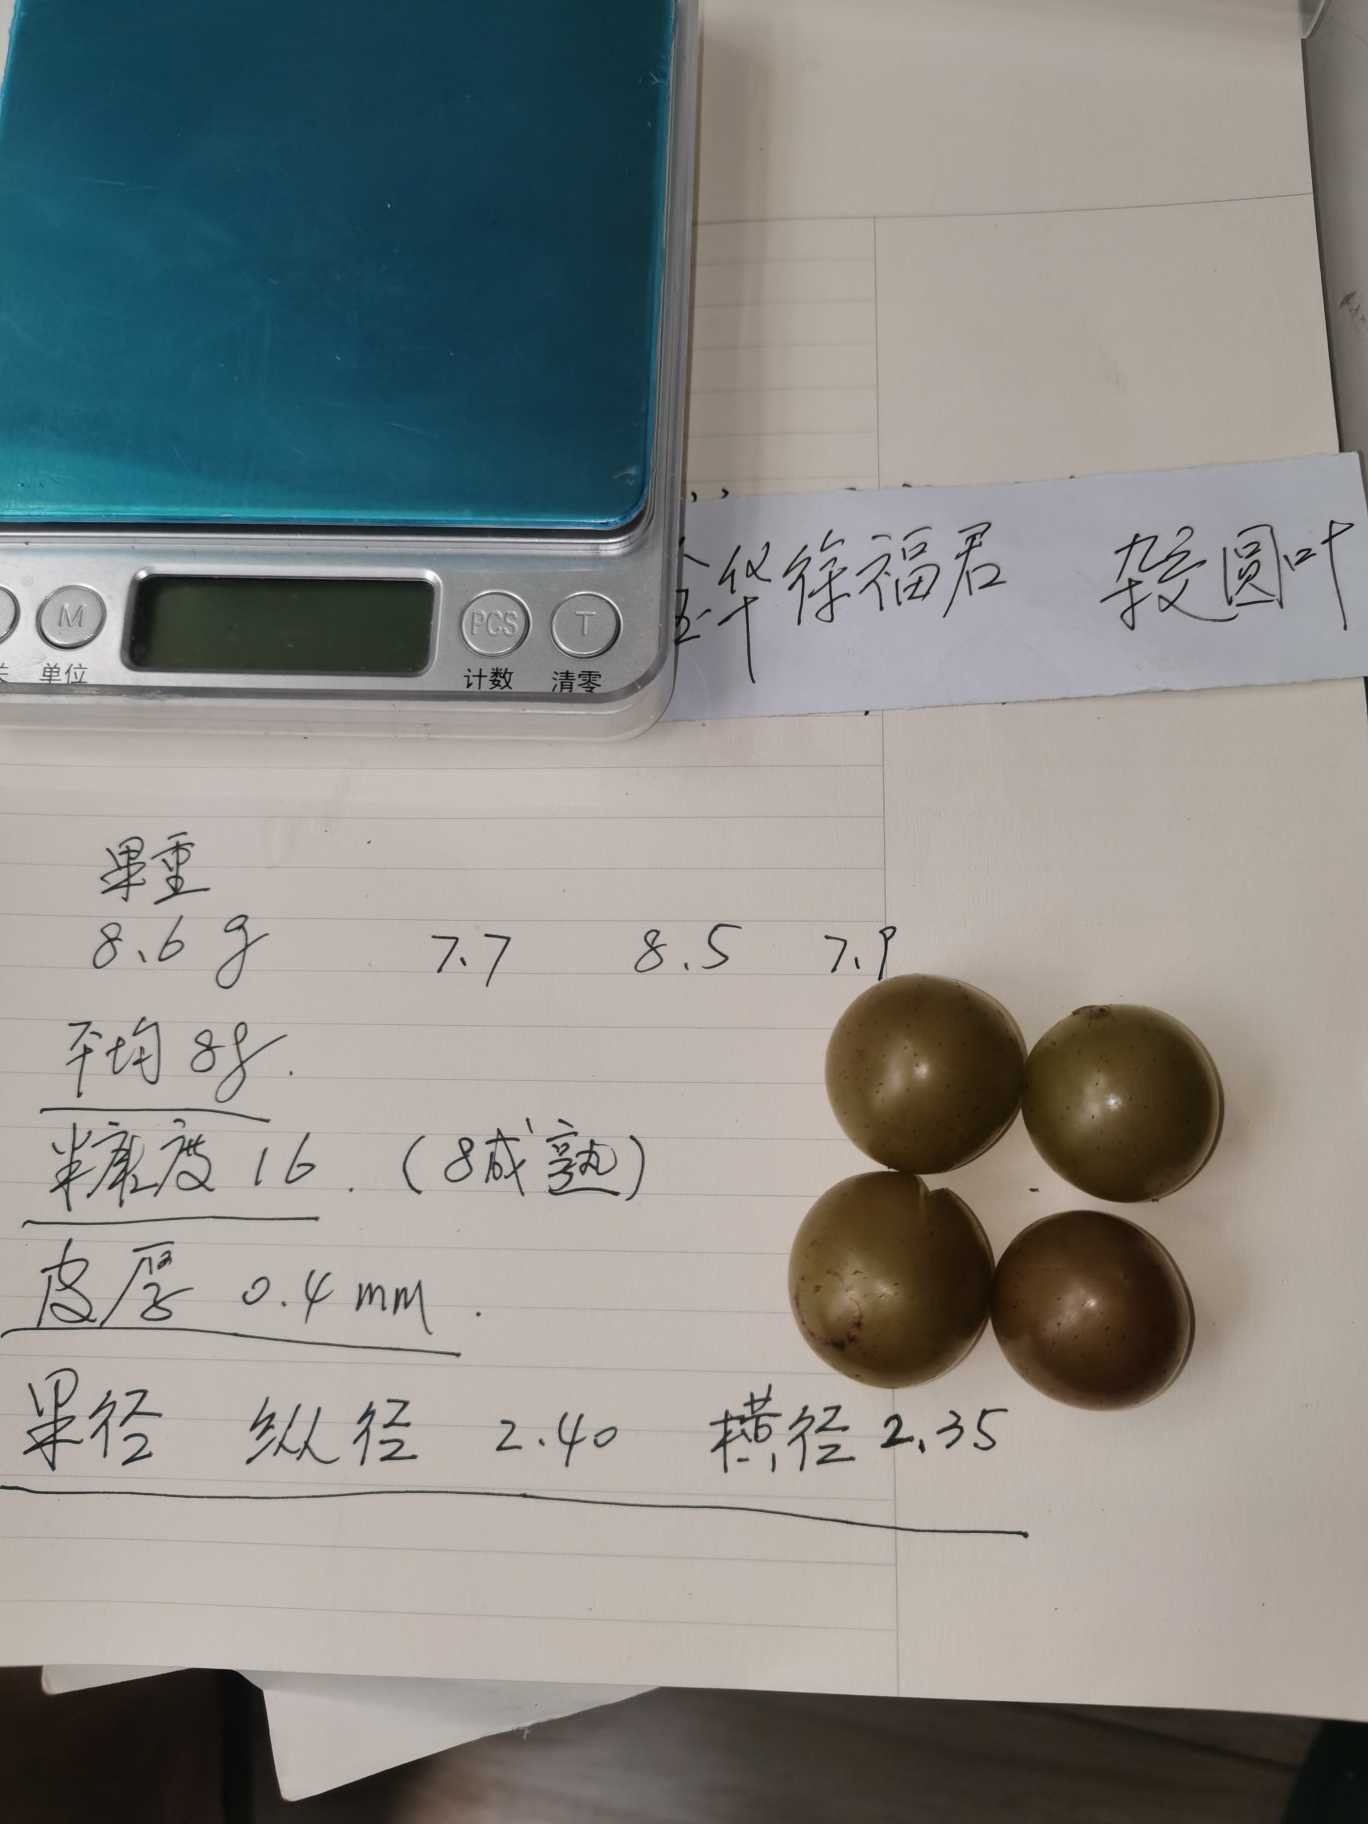 金华徐福君 杂交圆叶
M PCS T
单位 计数 清零
果重
8.6g 7.7 8.5 7.9
平均 8g.
糖度 16. (8成熟)
皮厚 0.4mm.
果径 纵径 2.40 横径 2.35